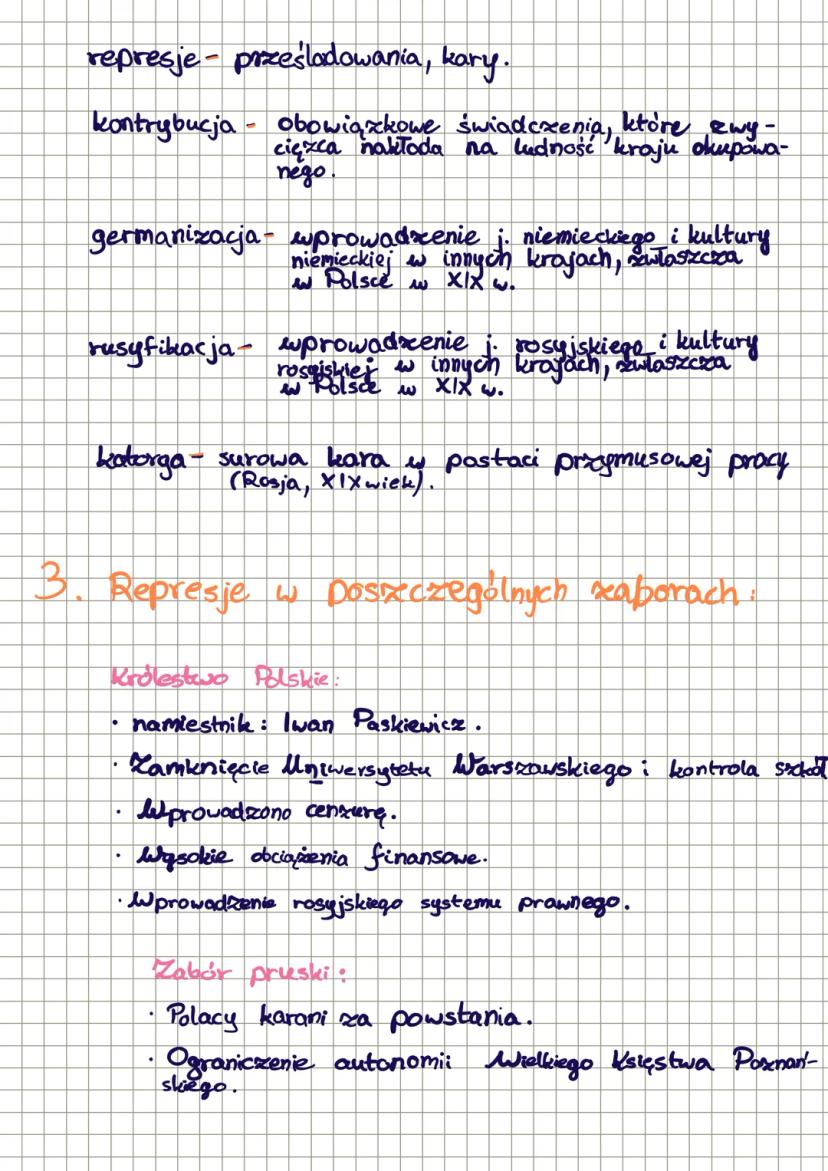 represje - prześladowania, kary.
kontrybucja - obowiązkowe świadczenia, które zwy-
cięzca nakłada na ludność kraju okupowa-
nego.
germanizacja - wprowadzenie j. niemieckiego i kultury
niemieckiej w innych krajach, zwłaszcza
w Polsce w XIX w.
rusyfikacja - wprowadzenie j. rosyjskiego i kultury
rosyjskiej w innych krajach, zwłaszcza
w Polsce w XIX w.
katorga - surowa kara w postaci przymusowej pracy
(Rosja, XIX wiek).
3. Represje w poszczególnych zaborach:
Królestwo Polskie:
· namiestnik: Iwan Paskiewicz.
· Zamknięcie Uniwersytetu Warszawskiego i kontrola szkół
· Wprowadzono cenzurę.
· Wysokie obciążenia finansowe.
· Wprowadzenie rosyjskiego systemu prawnego.
Zabór pruski:
· Polacy karani za powstania.
· Ograniczenie autonomii Wielkiego Księstwa Poznań-
skiego.